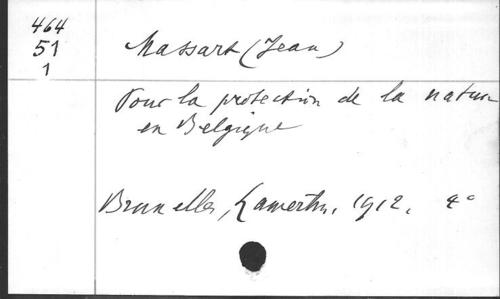 464
51
1
Massart (Jean)
Pour la protection de la nature
en Belgique
Bruxelles, Lamertin, 1912. 4°